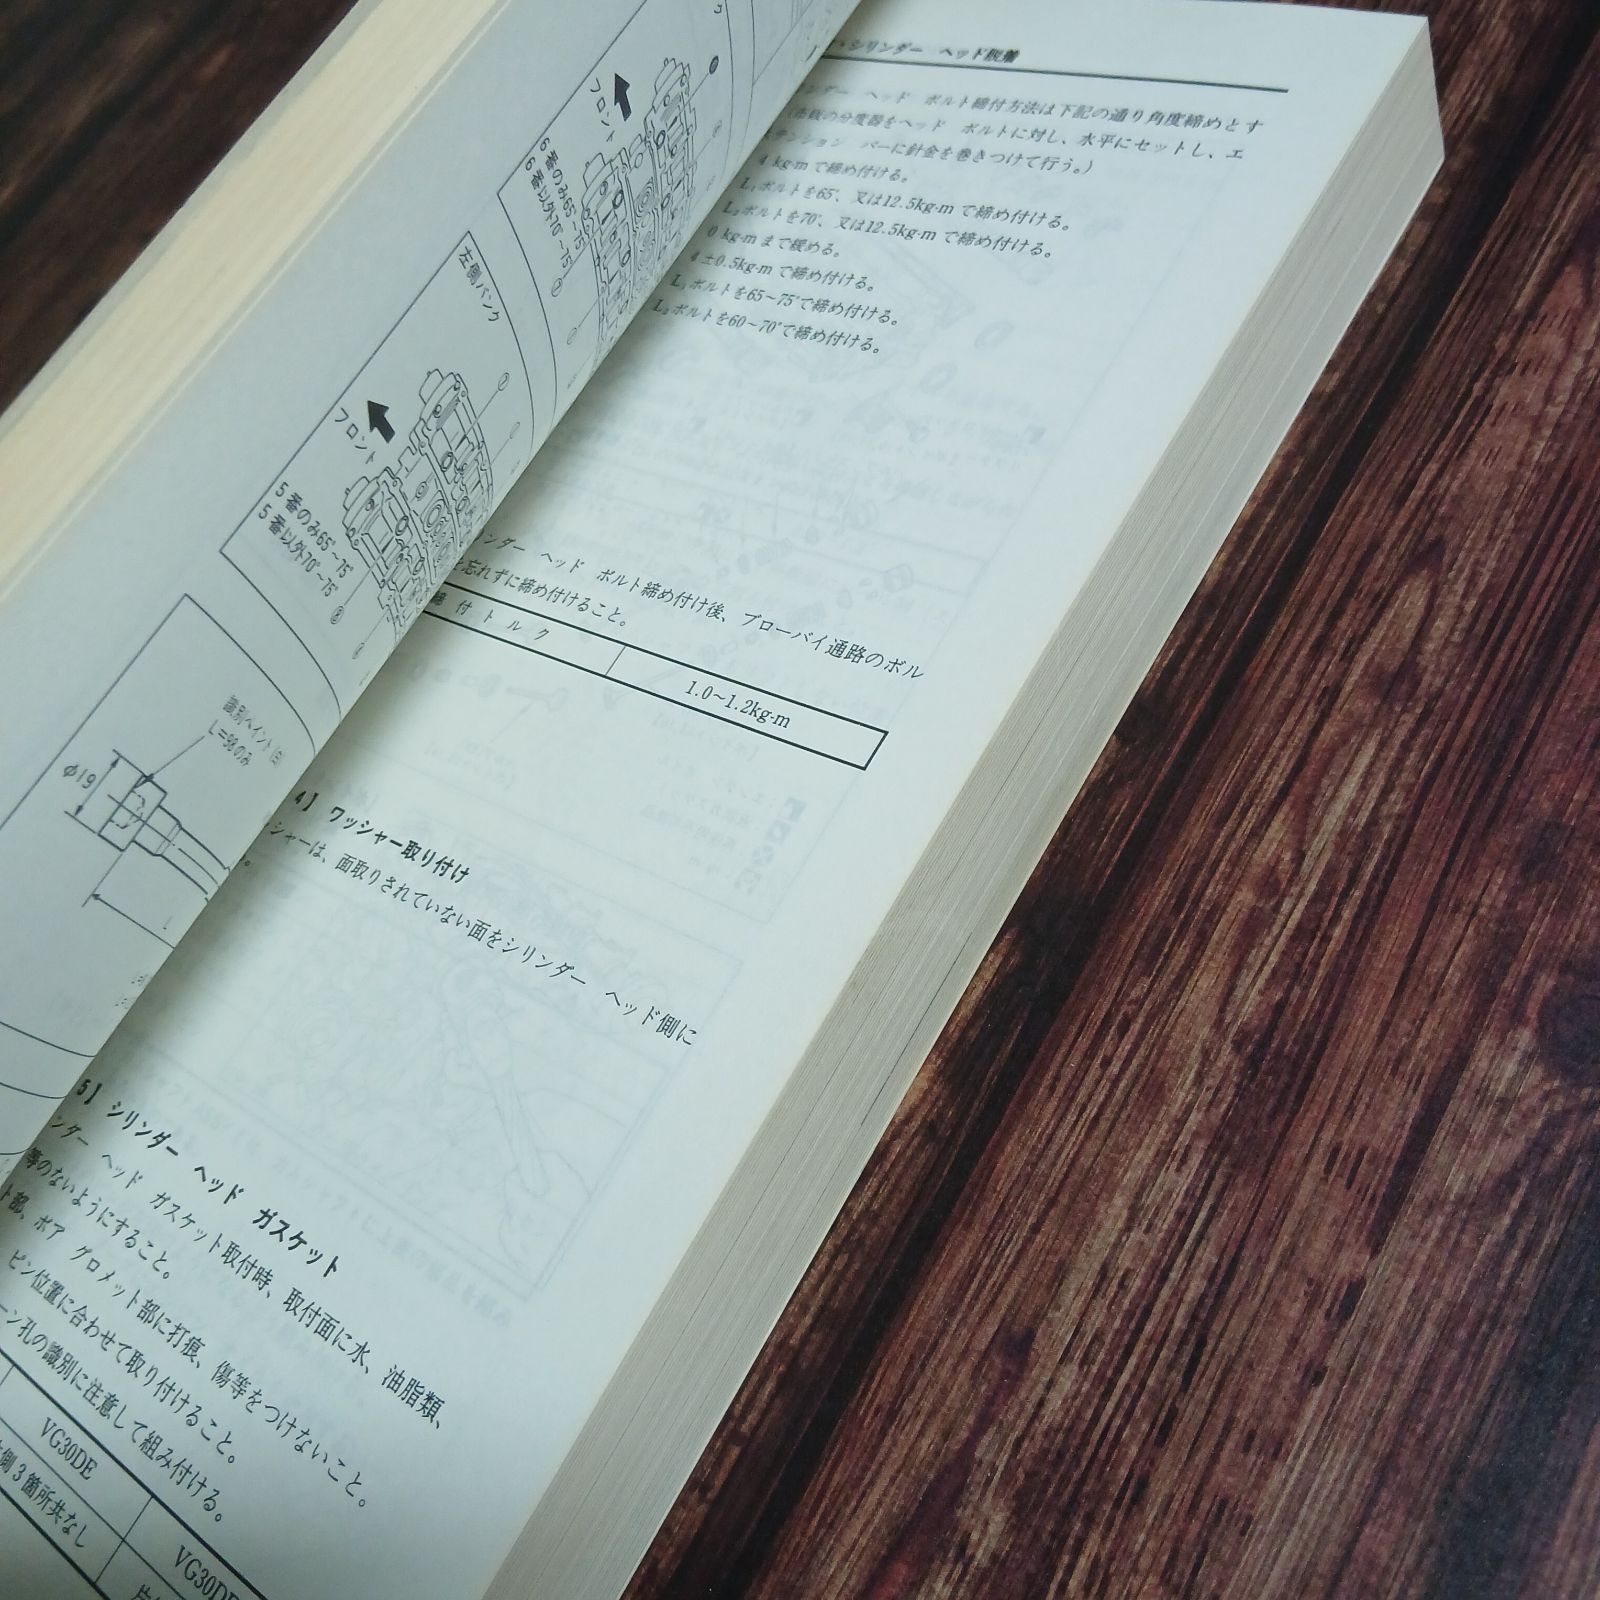 シリンダー ヘッド脱着
ンダー ヘッド ボルト締付方法は下記の通り角度締めとす
(市販の分度器をヘッド ボルトに対し、水平にセットし、エ
テンション バーに針金を巻きつけて行う。)
4 kg-mで締め付ける。
L₁ボルトを65°、又は12.5kg-mで締め付ける。
L₂ボルトを70°、又は12.5kg-mで締め付ける。
0 kg-mまで緩める。
4±0.5kg-mで締め付ける。
L₁ボルトを65~75°で締め付ける。
L₂ボルトを60~70°で締め付ける。
ンダー ヘッド ボルト締め付け後、ブローバイ通路のボル
を忘れずに締め付けること。
締付トルク
1.0~1.2kg-m
4】 ワッシャー取り付け
シャーは、面取りされていない面をシリンダー ヘッド側に
5】 シリンダー ヘッド ガスケット
ンダー ヘッド ガスケット取付時、取付面に水、油脂類、
等のないようにすること。
ト部、ボア グロメット部に打痕、傷等をつけないこと。
ピン位置に合わせて取り付けること。
ーン孔の識別に注意して組み付ける。
VG30DE
側3箇所共なし
フロント
6番のみ65°~75°
6番以外70°~75°
左側バンク
フロント
5番のみ65°~75°
5番以外70°~75°
識別ペイント(白)
L=98のみ
φ19